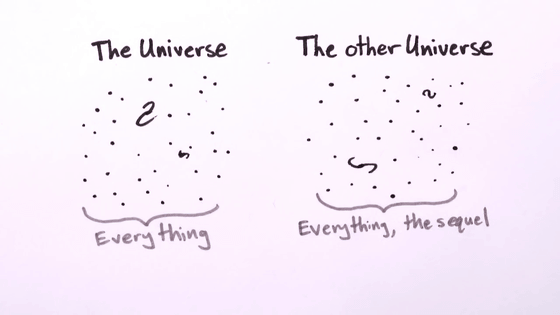 The Universe
The other Universe
Everything
Everything, the sequel